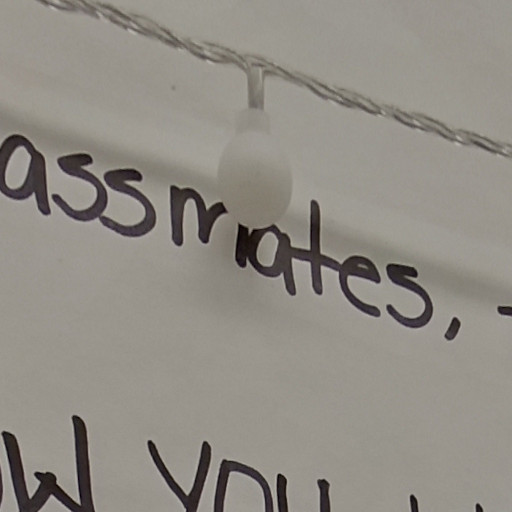 assmates,
ow you